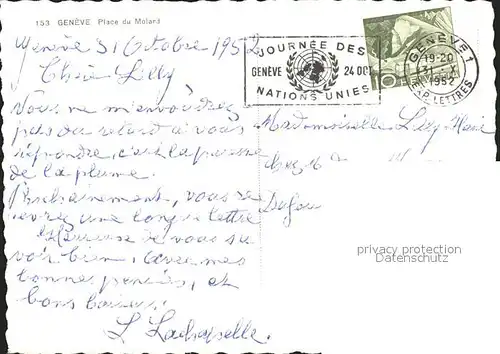 153 GENÈVE Place du Molard
Genève 31 Octobre 1952
Chère Lilly
Vous ne m'en voudrez
pas du retard à vous
répondre, c'est la paresse
de la plume.
Prochainement, vous
une longue lettre
Heureuse de vous
voir bien, avec mes
bonnes pensées, et
bons baisers.
L Lachapelle.
JOURNÉE DES
GENÈVE 24 OCT
NATIONS UNIES
GENÈVE 1
19-20
1952
EXP. LETTRES
10
Mademoiselle
chez M
privacy protection
Datenschutz